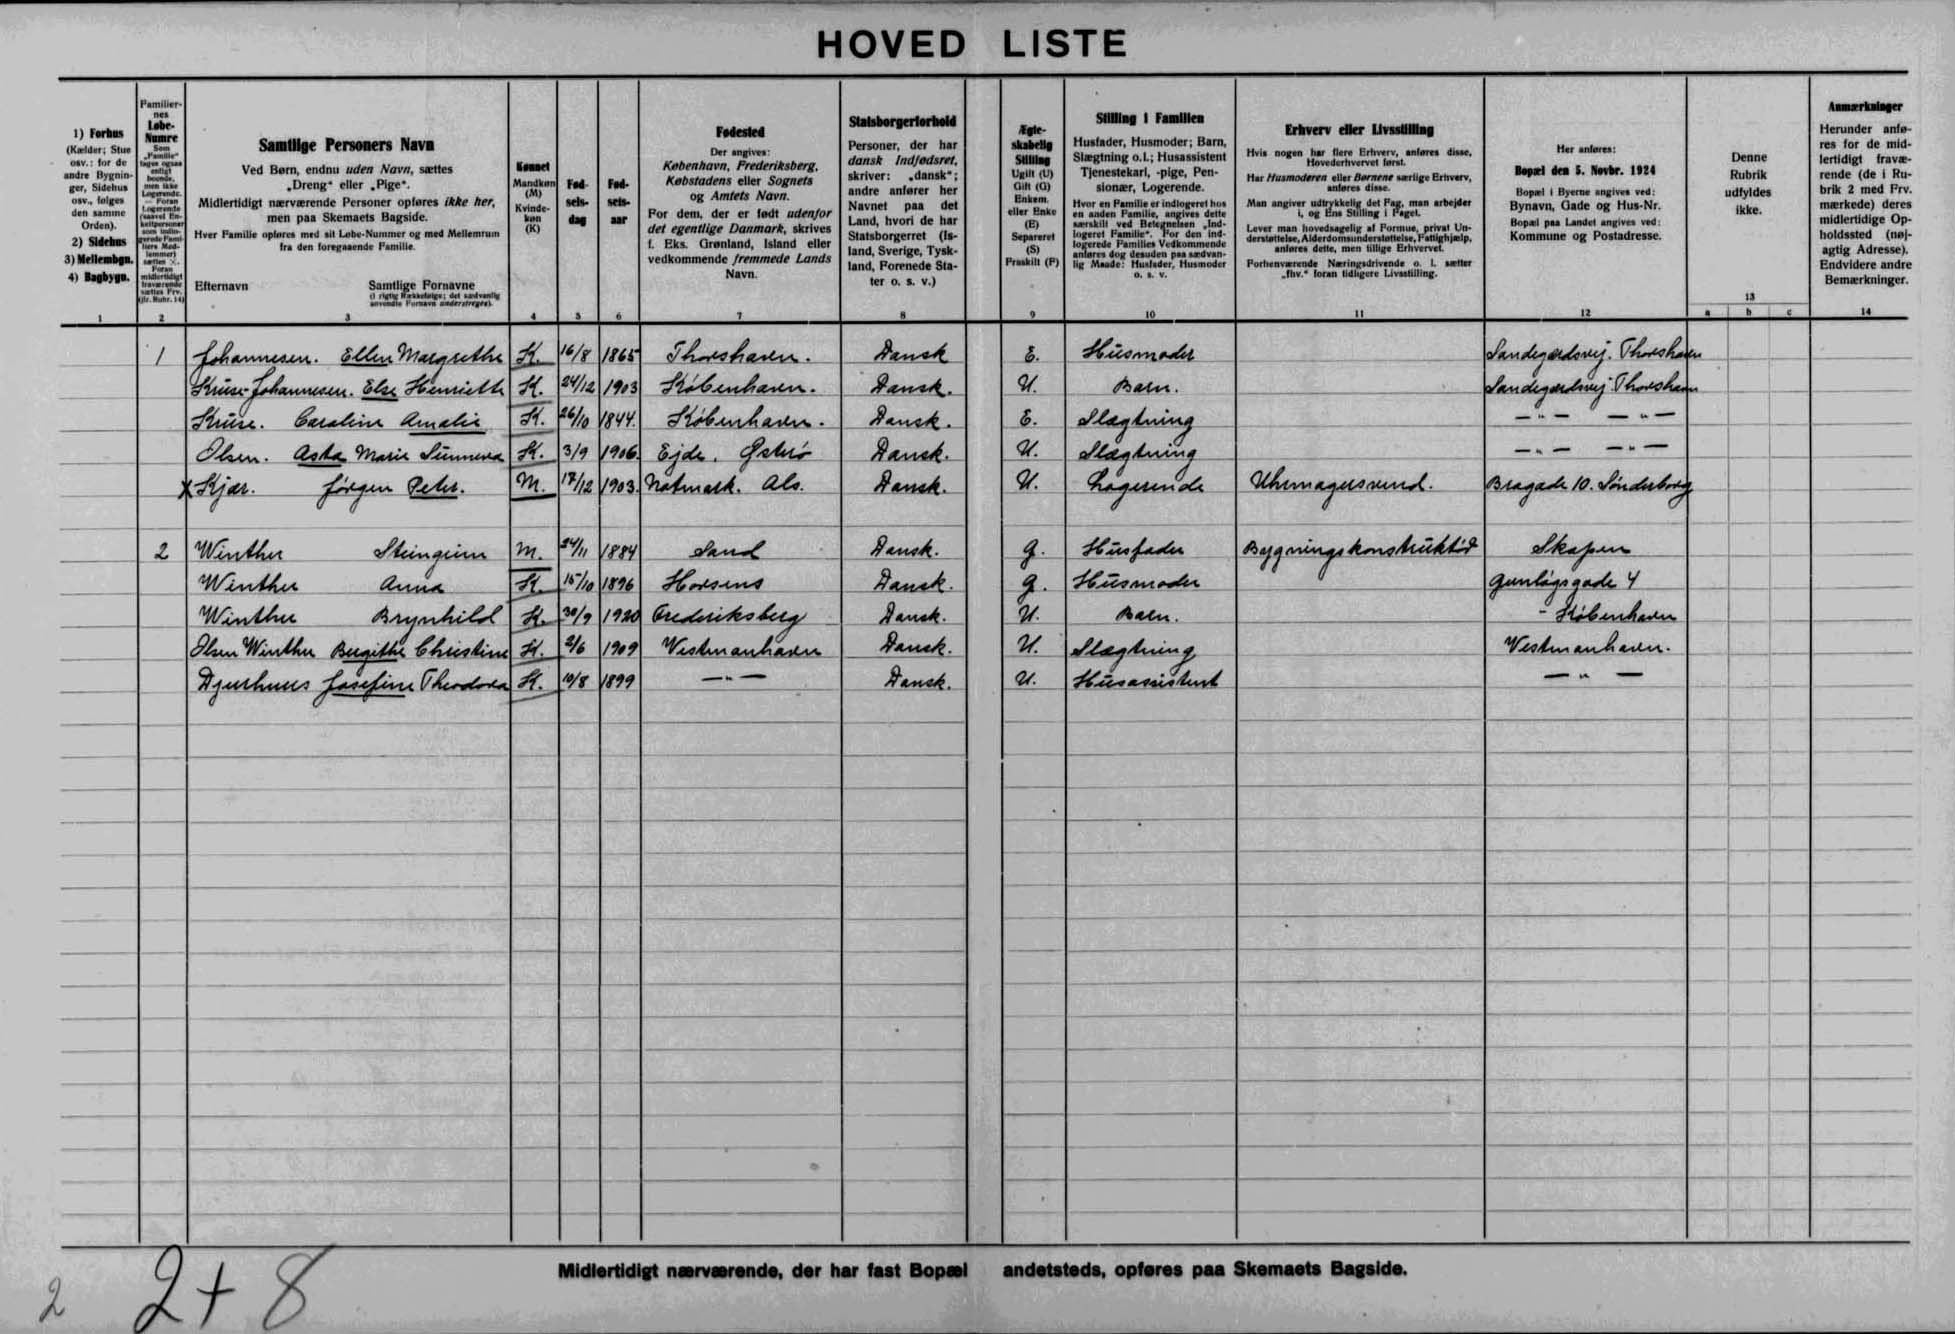 HOVED LISTE
1) Forhus
(Kælder; Stue
osv.: for de
andre Bygnin-
ger, Sidehus
osv., følges
den samme
Orden).
2) Sidehus
3) Mellembgn.
4) Bagbygn.
1
Familier-
nes
Løbe-
Numre
Som
„Familie"
tages ogsaa
enligt
boende,
men ikke
Logerende.
— Foran
Logerende
(saavel En-
keltpersoner
som indlo-
gerede Fami-
liers Med-
lemmer)
sættes ×.
Foran
midlertidigt
fraværende
sættes Frv.
(jfr. Rubr. 14)
2
Samtlige Personers Navn
Ved Børn, endnu uden Navn, sættes
„Dreng" eller „Pige".
Midlertidigt nærværende Personer opføres ikke her,
men paa Skemaets Bagside.
Hver Familie opføres med sit Løbe-Nummer og med Mellemrum
fra den foregaaende Familie.
Efternavn Samtlige Fornavne
(i rigtig Rækkefølge; det sædvanlig
anvendte Fornavn understreges).
3
Kønnet
Mandkøn
(M)
Kvinde-
køn
(K)
4
Fød-
sels-
dag
5
Fød-
sels-
aar
6
Fødested
Der angives:
København, Frederiksberg,
Købstadens eller Sognets
og Amtets Navn.
For dem, der er født udenfor
det egentlige Danmark, skrives
f. Eks. Grønland, Island eller
vedkommende fremmede Lands
Navn.
7
Statsborgerforhold
Personer, der har
dansk Indfødsret,
skriver: „dansk";
andre anfører her
Navnet paa det
Land, hvori de har
Statsborgerret (Is-
land, Sverige, Tysk-
land, Forenede Sta-
ter o. s. v.)
8
Ægte-
skabelig
Stilling
Ugift (U)
Gift (G)
Enkem.
eller Enke
(E)
Separeret
(S)
Fraskilt (F)
9
Stilling i Familien
Husfader, Husmoder; Barn,
Slægtning o.l.; Husassistent
Tjenestekarl, -pige, Pen-
sionær, Logerende.
Hvor en Familie er indlogeret hos
en anden Familie, angives dette
særskilt ved Betegnelsen „Ind-
logeret Familie". For den ind-
logerede Families Vedkommende
anføres dog desuden paa sædvan-
lig Maade: Husfader, Husmoder
o. s. v.
10
Erhverv eller Livsstilling
Hvis nogen har flere Erhverv, anføres disse,
Hovederhvervet først.
Har Husmoderen eller Børnene særlige Erhverv,
anføres disse.
Man angiver udtrykkelig det Fag, man arbejder
i, og Ens Stilling i Faget.
Lever man hovedsagelig af Formue, privat Un-
derstøttelse, Alderdomsunderstøttelse, Fattighjælp,
anføres dette, men tillige Erhvervet.
Forhenværende Næringsdrivende o. l. sætter
„fhv." foran tidligere Livsstilling.
11
Her anføres:
Bopæl den 5. Novbr. 1924
Bopæl i Byerne angives ved:
Bynavn, Gade og Hus-Nr.
Bopæl paa Landet angives ved:
Kommune og Postadresse.
12
Denne
Rubrik
udfyldes
ikke.
13
a b c
Anmærkninger
Herunder anfø-
res for de mid-
lertidigt fravæ-
rende (de i Ru-
brik 2 med Frv.
mærkede) deres
midlertidige Op-
holdssted (nøj-
agtig Adresse).
Endvidere andre
Bemærkninger.
14
1 Johannesen. Ellen Margrethe K. 16/8 1865 Thorshavn. Dansk E. Husmoder Sandegærdsvej. Thorshavn
Kruse-Johannesen. Else Henriette K. 24/12 1903 København. Dansk. U. Barn. Sandegærdsvej Thorshavn
Kruse. Caroline Amalie K. 26/10 1844. København. Dansk. E. Slægtning — " — — " —
Olsen. Asta Marie Sunneva K. 3/9 1906. Ejde. Østerø Dansk. U. Slægtning — " — — " —
x Kjær. Jörgen Peter. M. 17/12 1903. Notmark. Als. Dansk. U. Logerende Uhrmagersvend. Bragade 10. Sønderborg
2 Winther Steingrim M. 24/11 1884 Sand Dansk. g. Husfader Bygningskonstruktør Skapen
Winther Anna K. 15/10 1896 Horsens Dansk. g. Husmoder Gunløgsgade 4
Winther Brynhild K. 30/9 1920 Frederiksberg Dansk. U. Barn. - København
Olsen Winther Birgithe Christine K. 2/6 1909 Vestmanhavn Dansk. U. Slægtning Vestmanhavn.
Djurhuus Josefine Theodora K. 10/8 1899 — " — Dansk. U. Husassistent — " —
Midlertidigt nærværende, der har fast Bopæl andetsteds, opføres paa Skemaets Bagside.
2 2+8